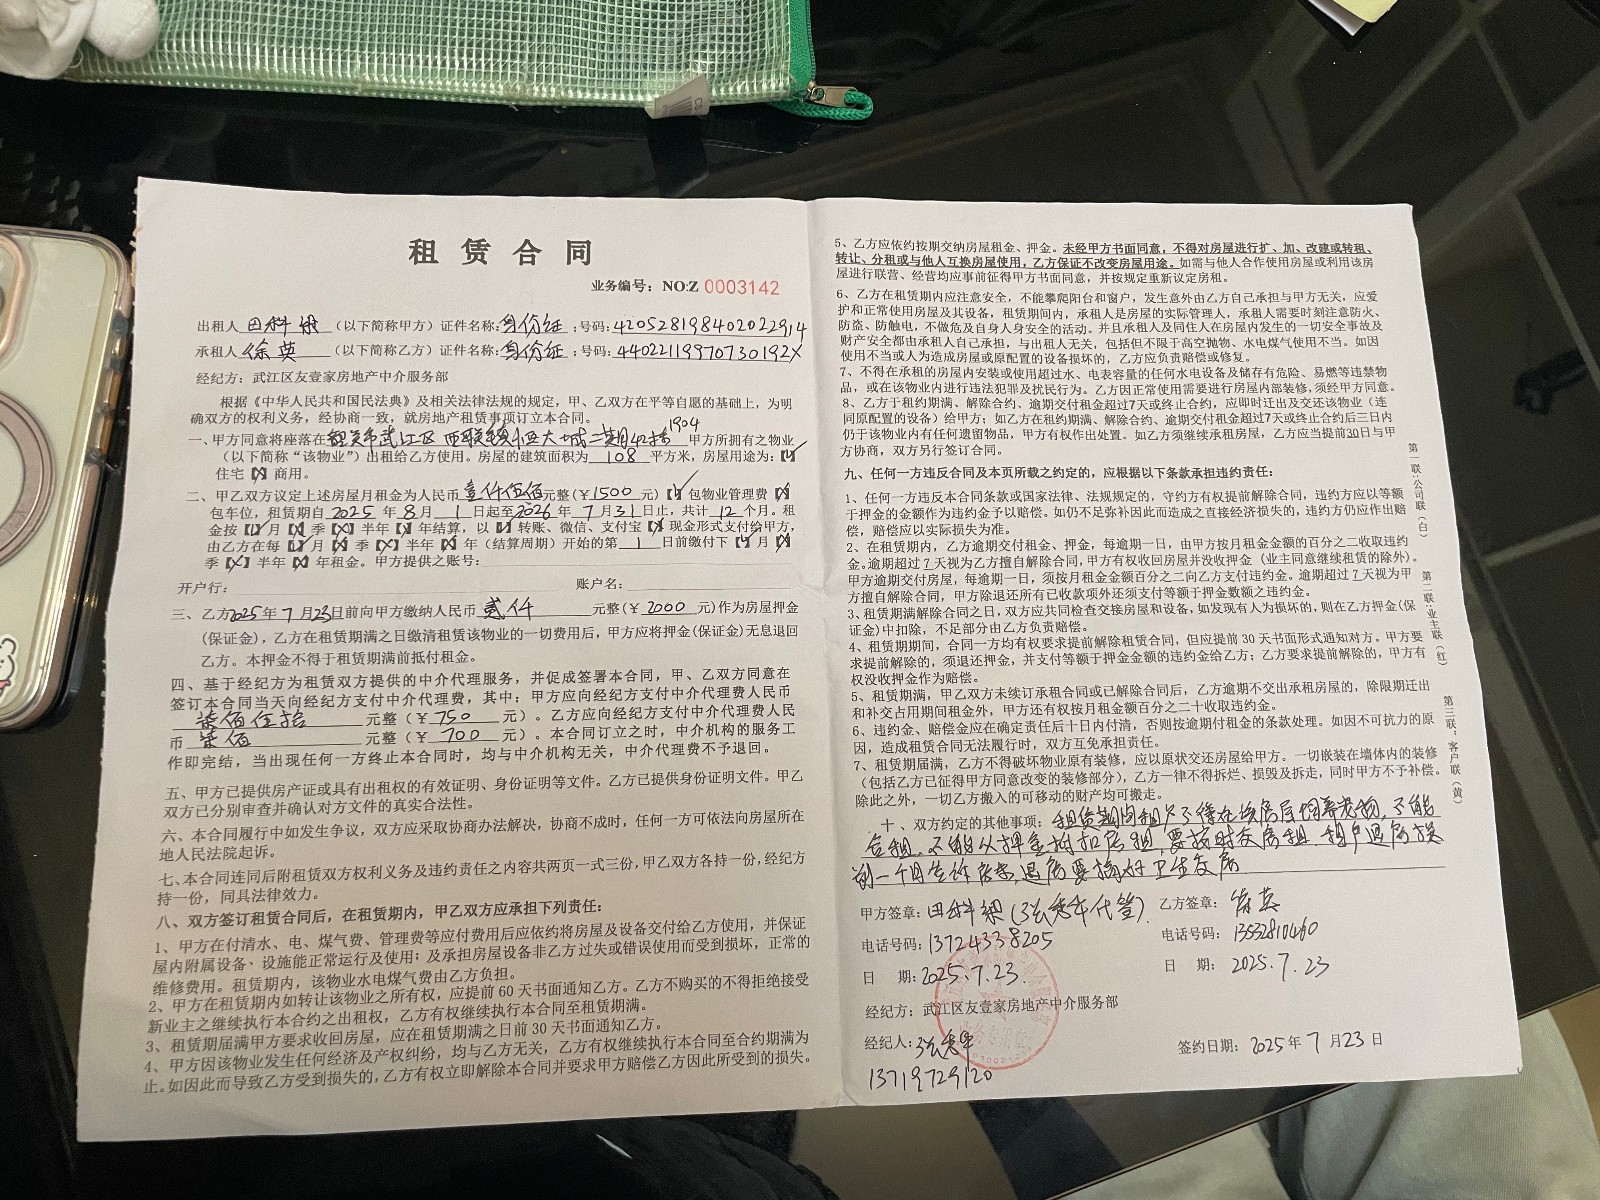 租赁合同
业务编号：NO:Z 0003142
出租人 田科 （以下简称甲方）证件名称:身份证；号码:420528198402022914
承租人 徐英 （以下简称乙方）证件名称:身份证；号码:44022119970730192X
经纪方：武江区友壹家房地产中介服务部
根据《中华人民共和国民法典》及相关法律法规的规定，甲、乙双方在平等自愿的基础上，为明
确双方的权利义务，经协商一致，就房地产租赁事项订立本合同。
一、甲方同意将座落在韶关市武江区西联镇恒大城二期42栋1904 甲方所拥有之物业
（以下简称“该物业”）出租给乙方使用。房屋的建筑面积为 108 平方米，房屋用途为：【✓】
住宅【×】商用。
二、甲乙双方议定上述房屋月租金为人民币 壹仟伍佰 元整（￥1500 元）【✓】包物业管理费【×】
包车位，租赁期自 2025 年 8 月 1 日起至 2026 年 7 月 31 日止，共计 12 个月。租
金按【✓】月【×】季【×】半年【×】年结算，以【✓】转账、微信、支付宝【×】现金形式支付给甲方，
由乙方在每【✓】月【×】季【×】半年【×】年（结算周期）开始的第 1 日前缴付下【✓】月【×】
季【×】半年【×】年租金。甲方提供之账号：
开户行： 账户名：
三、乙方2025年 7 月 23日前向甲方缴纳人民币 贰仟 元整（￥2000 元）作为房屋押金
（保证金），乙方在租赁期满之日缴清租赁该物业的一切费用后，甲方应将押金(保证金)无息退回
乙方。本押金不得于租赁期满前抵付租金。
四、基于经纪方为租赁双方提供的中介代理服务，并促成签署本合同，甲、乙双方同意在
签订本合同当天向经纪方支付中介代理费，其中：甲方应向经纪方支付中介代理费人民币
柒佰伍拾 元整（￥750 元）。乙方应向经纪方支付中介代理费人民
币 柒佰 元整（￥700 元）。本合同订立之时，中介机构的服务工
作即完结，当出现任何一方终止本合同时，均与中介机构无关，中介代理费不予退回。
五、甲方已提供房产证或具有出租权的有效证明、身份证明等文件。乙方已提供身份证明文件。甲乙
双方已分别审查并确认对方文件的真实合法性。
六、本合同履行中如发生争议，双方应采取协商办法解决，协商不成时，任何一方可依法向房屋所在
地人民法院起诉。
七、本合同连同后附租赁双方权利义务及违约责任之内容共两页一式三份，甲乙双方各持一份，经纪方
持一份，同具法律效力。
八、双方签订租赁合同后，在租赁期内，甲乙双方应承担下列责任：
1、甲方在付清水、电、煤气费、管理费等应付费用后应依约将房屋及设备交付给乙方使用，并保证
屋内附属设备、设施能正常运行及使用；及承担房屋设备非乙方过失或错误使用而受到损坏，正常的
维修费用。租赁期内，该物业水电煤气费由乙方负担。
2、甲方在租赁期内如转让该物业之所有权，应提前 60 天书面通知乙方。乙方不购买的不得拒绝接受
新业主之继续执行本合约之出租权，乙方有权继续执行本合同至租赁期满。
3、租赁期届满甲方要求收回房屋，应在租赁期满之日前 30 天书面通知乙方。
4、甲方因该物业发生任何经济及产权纠纷，均与乙方无关，乙方有权继续执行本合同至合约期满为
止。如因此而导致乙方受到损失的，乙方有权立即解除本合同并要求甲方赔偿乙方因此所受到的损失。
5、乙方应依约按期交纳房屋租金、押金。未经甲方书面同意，不得对房屋进行扩、加、改建或转租、
转让、分租或与他人互换房屋使用，乙方保证不改变房屋用途。如需与他人合作使用房屋或利用该房
屋进行联营、经营均应事前征得甲方书面同意，并按规定重新议定房租。
6、乙方在租赁期内应注意安全，不能攀爬阳台和窗户，发生意外由乙方自己承担与甲方无关，应爱
护和正常使用房屋及其设备，租赁期间内，承租人是房屋的实际管理人，承租人需要时刻注意防火、
防盗、防触电，不做危及自身人身安全的活动。并且承租人及同住人在房屋内发生的一切安全事故及
财产安全都由承租人自己承担，与出租人无关，包括但不限于高空抛物、水电煤气使用不当。如因
使用不当或人为造成房屋或原配置的设备损坏的，乙方应负责赔偿或修复。
7、不得在承租的房屋内安装或使用超过水、电表容量的任何水电设备及储存有危险、易燃等违禁物
品，或在该物业内进行违法犯罪及扰民行为。乙方因正常使用需要进行房屋内部装修，须经甲方同意。
8、乙方于租约期满、解除合约、逾期交付租金超过7天或终止合约，应即时迁出及交还该物业（连
同原配置的设备）给甲方；如乙方在租约期满、解除合约、逾期交付租金超过7天或终止合约后三日内
仍于该物业内有任何遗留物品，甲方有权作出处置。如乙方须继续承租房屋，乙方应当提前30日与甲
方协商，双方另行签订合同。
九、任何一方违反合同及本页所载之约定的，应根据以下条款承担违约责任：
1、任何一方违反本合同条款或国家法律、法规规定的，守约方有权提前解除合同，违约方应以等额
于押金的金额作为违约金予以赔偿。如仍不足弥补因此而造成之直接经济损失的，违约方仍应作出赔
偿，赔偿应以实际损失为准。
2、在租赁期内，乙方逾期交付租金、押金，每逾期一日，由甲方按月租金金额的百分之二收取违约
金。逾期超过 7 天视为乙方擅自解除合同，甲方有权收回房屋并没收押金（业主同意继续租赁的除外）。
甲方逾期交付房屋，每逾期一日，须按月租金金额百分之二向乙方支付违约金。逾期超过 7 天视为甲
方擅自解除合同，甲方除退还所有已收款项外还须支付等额于押金数额之违约金。
3、租赁期满解除合同之日，双方应共同检查交接房屋和设备，如发现有人为损坏的，则在乙方押金(保
证金)中扣除，不足部分由乙方负责赔偿。
4、租赁期期间，合同一方均有权要求提前解除租赁合同，但应提前 30 天书面形式通知对方。甲方要
求提前解除的，须退还押金，并支付等额于押金金额的违约金给乙方；乙方要求提前解除的，甲方有
权没收押金作为赔偿。
5、租赁期满，甲乙双方未续订承租合同或已解除合同后，乙方逾期不交出承租房屋的，除限期迁出
和补交占用期间租金外，甲方还有权按月租金额百分之二十收取违约金。
6、违约金、赔偿金应在确定责任后十日内付清，否则按逾期付租金的条款处理。如因不可抗力的原
因，造成租赁合同无法履行时，双方互免承担责任。
7、租赁期届满，乙方不得破坏物业原有装修，应以原状交还房屋给甲方。一切嵌装在墙体内的装修
（包括乙方已征得甲方同意改变的装修部分），乙方一律不得拆烂、损毁及拆走，同时甲方不予补偿。
除此之外，一切乙方搬入的可移动的财产均可搬走。
十、双方约定的其他事项：租赁期间租户不得在该房屋饲养宠物，不能
合租，不能从押金抵扣房租，要按时交房租，租户退房提
前一个月告诉房东，退房要搞好卫生交房
甲方签章：田科（张秀华代签） 乙方签章：徐英
电话号码：13724338205 电话号码：13532810460
日 期：2025.7.23 日 期：2025.7.23
经纪方：武江区友壹家房地产中介服务部
经纪人：张秀华 签约日期：2025年 7 月23日
13719729120
第一联：公司联（白）
第二联：业主联（红）
第三联：客户联（黄）